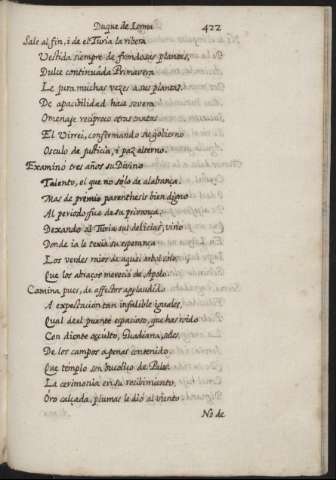 Duque de Lerma 422
Sale al fin, i de el Turia la ribera
Vestida siempre de frondosas plantas,
Dulce continuada Primavera
Le jura muchas vezes a sus plantas.
De apacibilidad haze severa
Omenaje reciproco otras tantas
El Virrei, confirmando su gobierno
Osculo de justicia, i paz alterno.
Examinó tres años su Divino
Talento, el que no sólo de alabança
Mas de premio parenthesis bien digno
Al periodo fue de su privança
Dexando al Turia sus delicias, vino
Donde ia le texia su esperança
Los verdes raios de aquel arbol solo,
Que los abraços merecio de Apolo.
Camina pues, de affectos applaudido
A expectacion tan infalible iguales,
Qual del puente espacioso, que ha roido
Con diente occulto, Guadiana, sales
De los campos apenas contenido,
Que templo son bucolico de Pales
La cerimonia en su recibimiento,
Oro calçada, plumas le dió al viento
No de